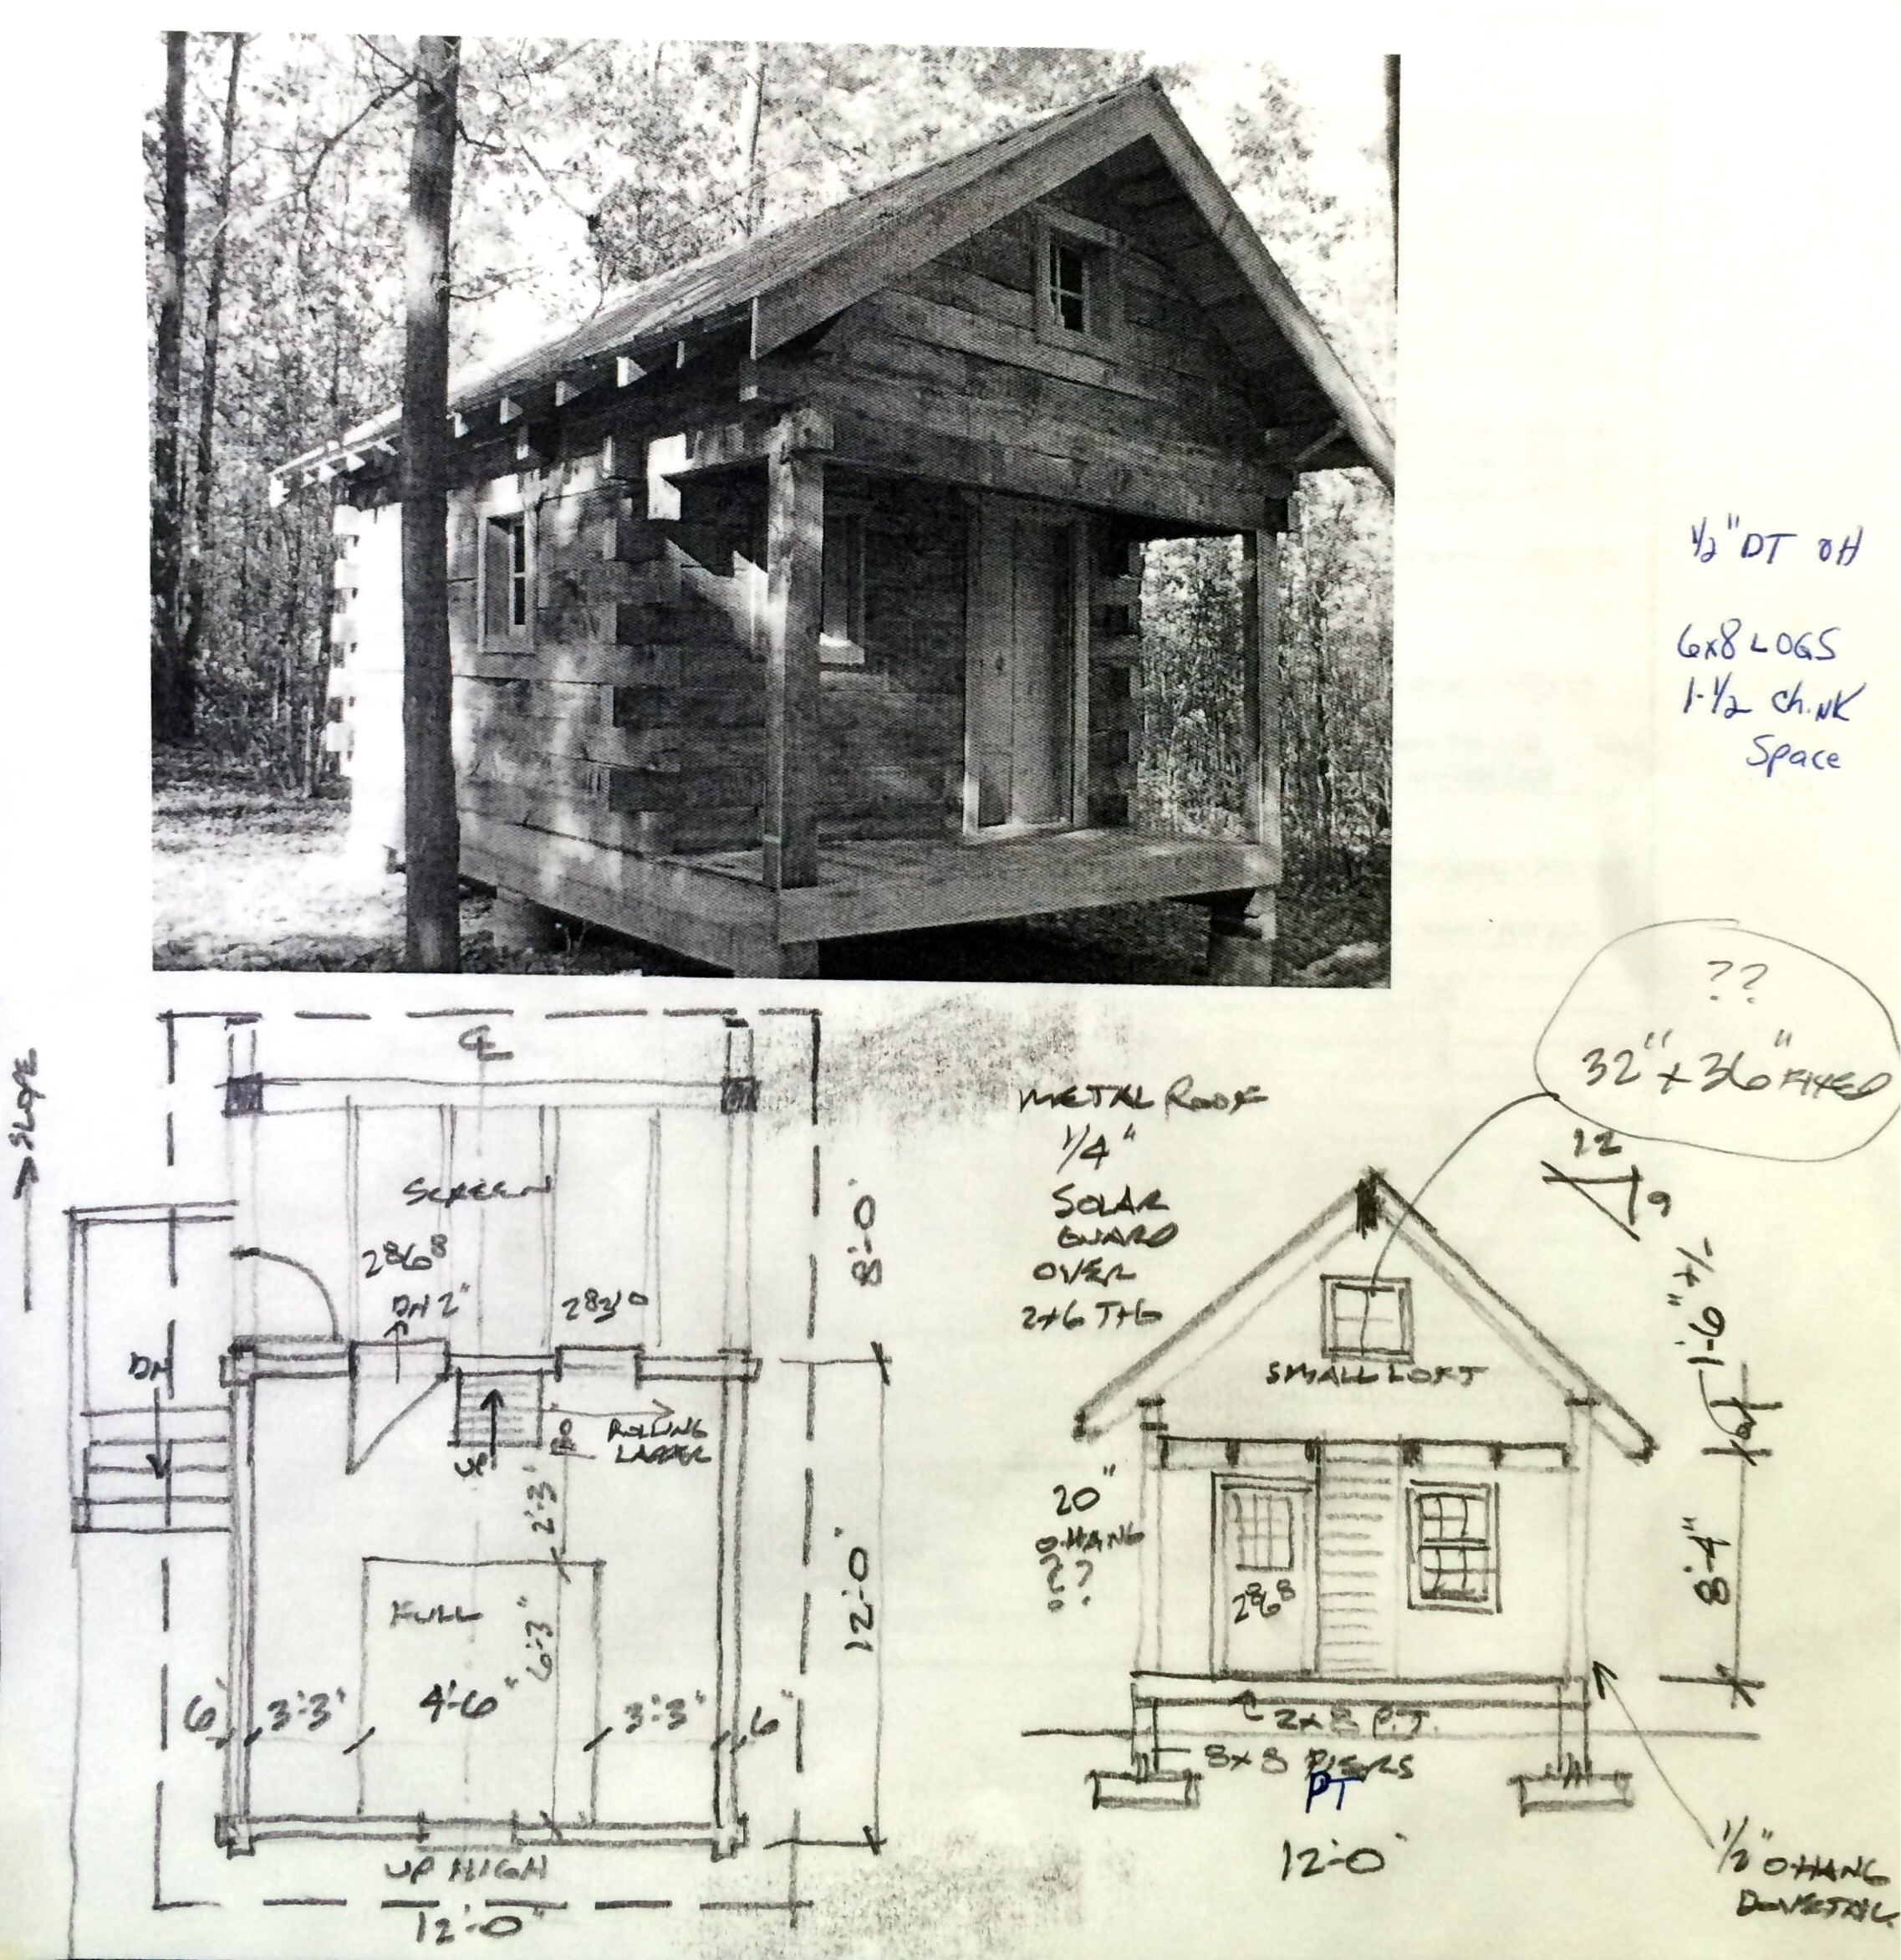 1/2" DT OH
6x8 LOGS
1-1/2 chink
Space
??
32" x 36" FIXED
12
9
→ SLOPE
℄
SCREEN
2868
DN 2"
2830
8'-0"
DN
UP
ROLLING
LADDER
2'-3"
FULL
6'-3"
6"
3'-3"
4'-6"
3'-3"
6"
12'-0"
UP HIGH
12'-0"
METAL ROOF
1/4"
SOLAR
GUARD
OVER
2x6 T+G
SMALL LOFT
1'-6" +/-
20"
O-HANG
??
2868
8'-4"
2x8 P.T.
8x8 PIERS
PT
12'-0"
1/2" O-HANG
DOVETAIL